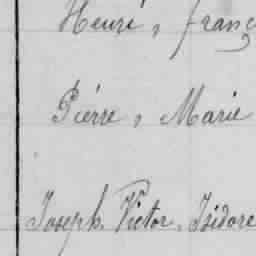 Henri, franç
Piérre, Marie
Joseph, Victor, Isidore